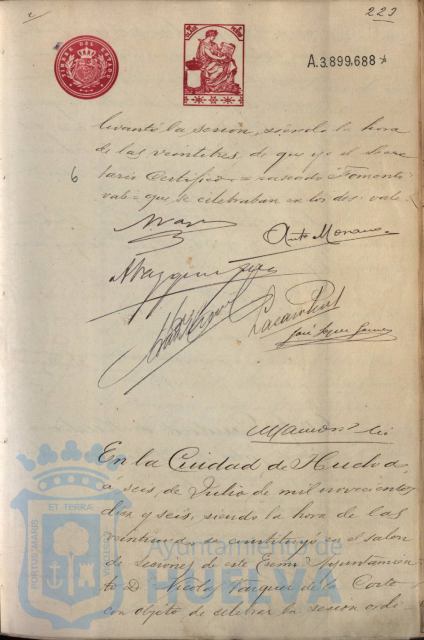 223
TIMBRE DEL ESTADO
A.3,899,688
levantó la sesion, siendo la hora
de las veintitres, de que yo el Secre
tario Certifico = raspado = Fomento
vale = que se celebraban en los dos = vale
6
Anto Moreno
José
En la Ciudad de Huelva
á seis, de Julio de mil novecientos
diez y seis, siendo la hora de las
veintiuna, se constituyó en el salon
de sesiones de este Excmo Ayuntamien
to D. Nicolas Vazquez de la Corte
con objeto de celebrar la sesion ordi-
PORTUS MARIS ET TERRAE CUSTODIA
Ayuntamiento de
HUELVA